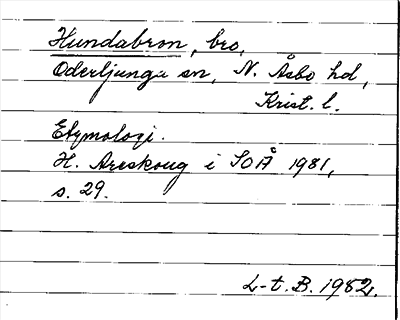 Hundabron, bro,
Oderljunga sn, N. Åsbo hd,
Krist. l.
Etymologi.
H. Areskoug i SOÅ 1981,
s. 29.
L-t. B. 1982.